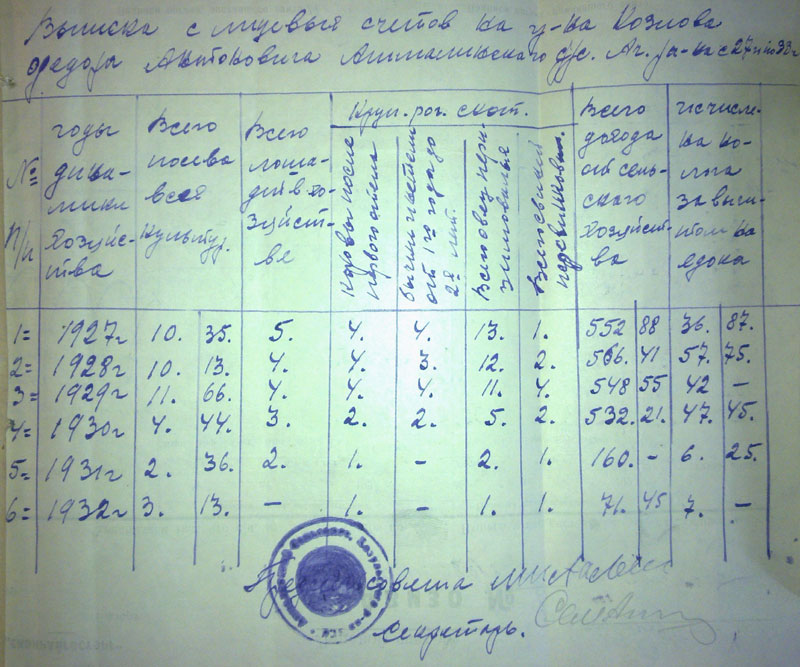 Выписка с лицевых счетов на гр-на Козлова
Федора Антоновича Ашпалыкского с/с. Ач. р-на с 27 г по 33 г
№ п/п
годы динамики хозяйства
Всего посева всей культур.
Всего лошадей в хозяйстве
Круп. рог. скот.
Коровы после первого отела
бычки и нетели от 1 го года до 2 х лет.
Всего овец перезимовалых
Всего свиней перезимовал.
Всего дохода от сельского хозяйства
исчислена налога за вычитом на едока
1= 1927 г 10. 35. 5. 4. 4. 13. 1. 552 88 36. 87.
2= 1928 г 10. 13. 4. 4. 3. 12. 2. 566. 41 57. 75.
3= 1929 г 11. 66. 4. 4. 4. 11. 4. 548 55 42 –
4= 1930 г 4. 44. 3. 2. 2. 5. 2. 532. 21. 47. 45.
5= 1931 г 2. 36. 2. 1. – 2. 1. 160. – 6. 25.
6= 1932 г 3. 13. – 1. – 1. 1. 71. 45 7. –
Пред. Совета
Секретарь.